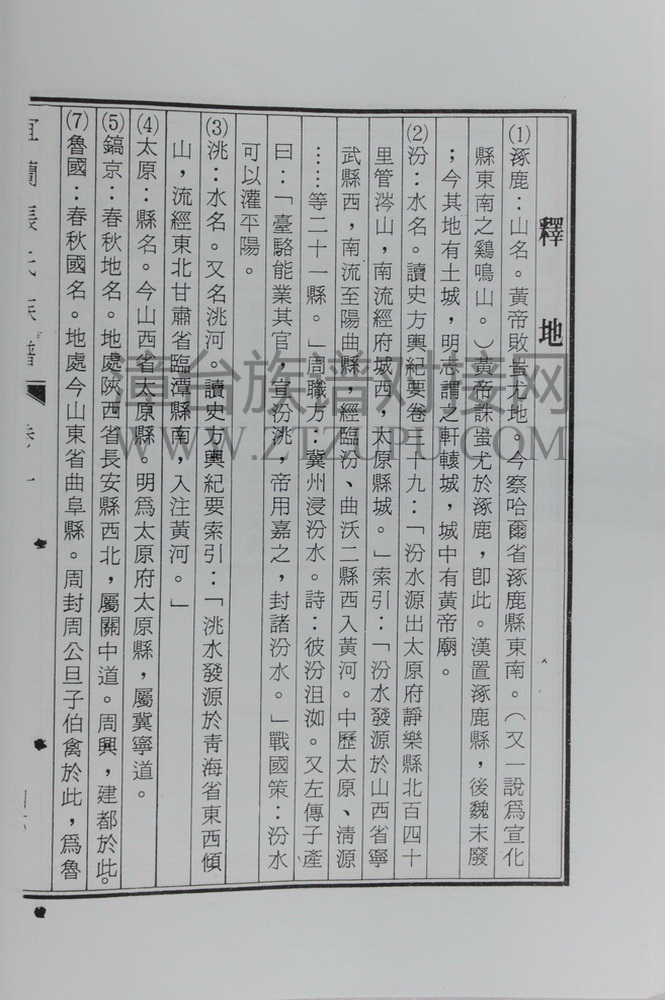 釋地
⑴涿鹿：山名。黃帝敗蚩尤地。今察哈爾省涿鹿縣東南。（又一說爲宣化
縣東南之鷄鳴山。）黃帝誅蚩尤於涿鹿，卽此。漢置涿鹿縣，後魏末廢
；今其地有土城，明志謂之軒轅城，城中有黃帝廟。
⑵汾：水名。讀史方輿紀要卷三十九：「汾水源出太原府靜樂縣北百四十
里管涔山，南流經府城西，太原縣城。」索引：「汾水發源於山西省寧
武縣西，南流至陽曲縣，經臨汾、曲沃二縣西入黃河。中歷太原、淸源
……等二十一縣。」周職方：冀州浸汾水。詩：彼汾沮洳。又左傳子產
曰：「臺駱能業其官，宣汾洮，帝用嘉之，封諸汾水。」戰國策：汾水
可以灌平陽。
⑶洮：水名。又名洮河。讀史方輿紀要索引：「洮水發源於靑海省東西傾
山，流經東北甘肅省臨潭縣南，入注黃河。」
⑷太原：縣名。今山西省太原縣。明爲太原府太原縣，屬冀寧道。
⑸鎬京：春秋地名。地處陝西省長安縣西北，屬關中道。周興，建都於此。
⑺魯國：春秋國名。地處今山東省曲阜縣。周封周公旦子伯禽於此，爲魯
宜蘭張氏族譜 卷一
漳台族谱对接网
WWW.ZTZUPU.COM